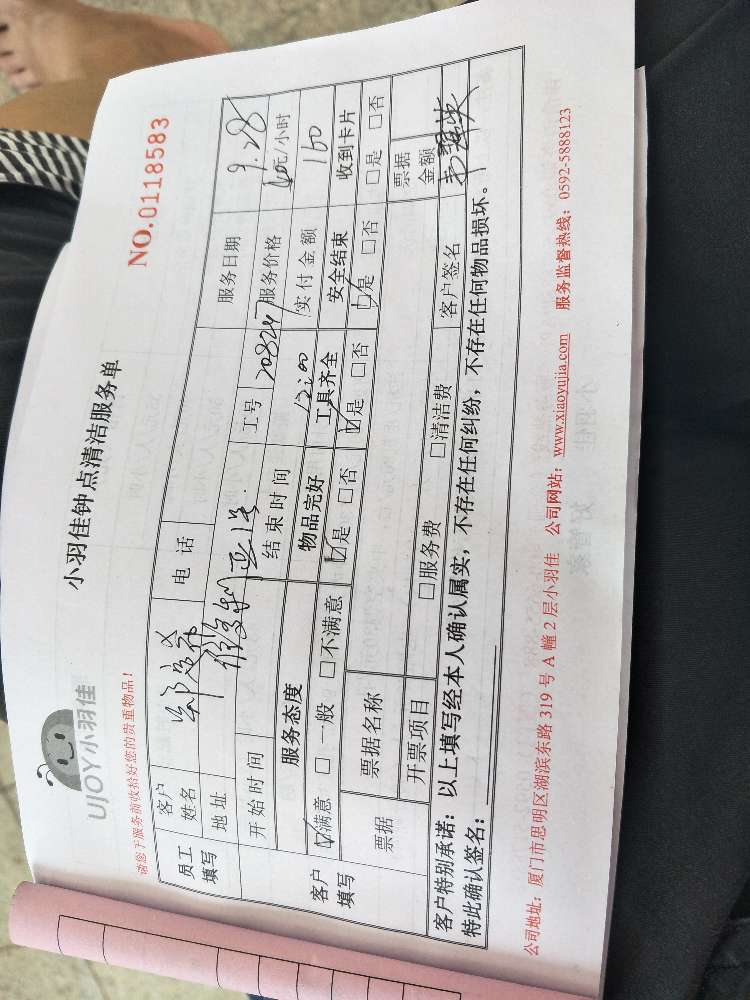 UJOY小羽佳
小羽佳钟点清洁服务单
NO.0118583
请您于服务前收拾好您的贵重物品！
员工填写 客户姓名 电话 服务日期 9.28
地址 工号 208247 服务价格 元/小时
开始时间 结束时间 12:00 实付金额 160
客户填写 服务态度 物品完好 工具齐全 安全结束 收到卡片
☑满意 □一般 □不满意 ☑是 □否 ☑是 □否 ☑是 □否 □是 □否
票据 票据名称 票据金额
开票项目 □服务费 □清洁费 客户签名
客户特别承诺：以上填写经本人确认属实，不存在任何纠纷，不存在任何物品损坏。
特此确认签名：
公司地址：厦门市思明区湖滨东路 319 号 A 幢 2 层小羽佳 公司网站：www.xiaoyujia.com 服务监督热线：0592-5888123